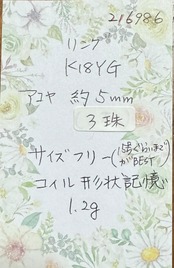 216986
リング
K18YG
アコヤ 約5mm
3珠
サイズフリー(
がBEST)
コイル形状記憶
1.2g